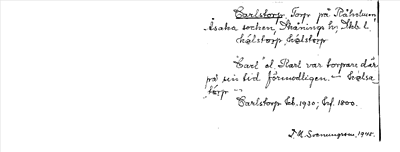 Carlstorp, Torp på Råhstum
Åsaka socken, Skånings hd, Skb. l.
hálstorp, hálstorp
"Carl" el. Karl var torpare där
på sin tid förmodligen. — hálsa
tórp —
Carlstorp Eeb. 1930; Gsf. 1800.
D. A. Svenungsson, 1945.